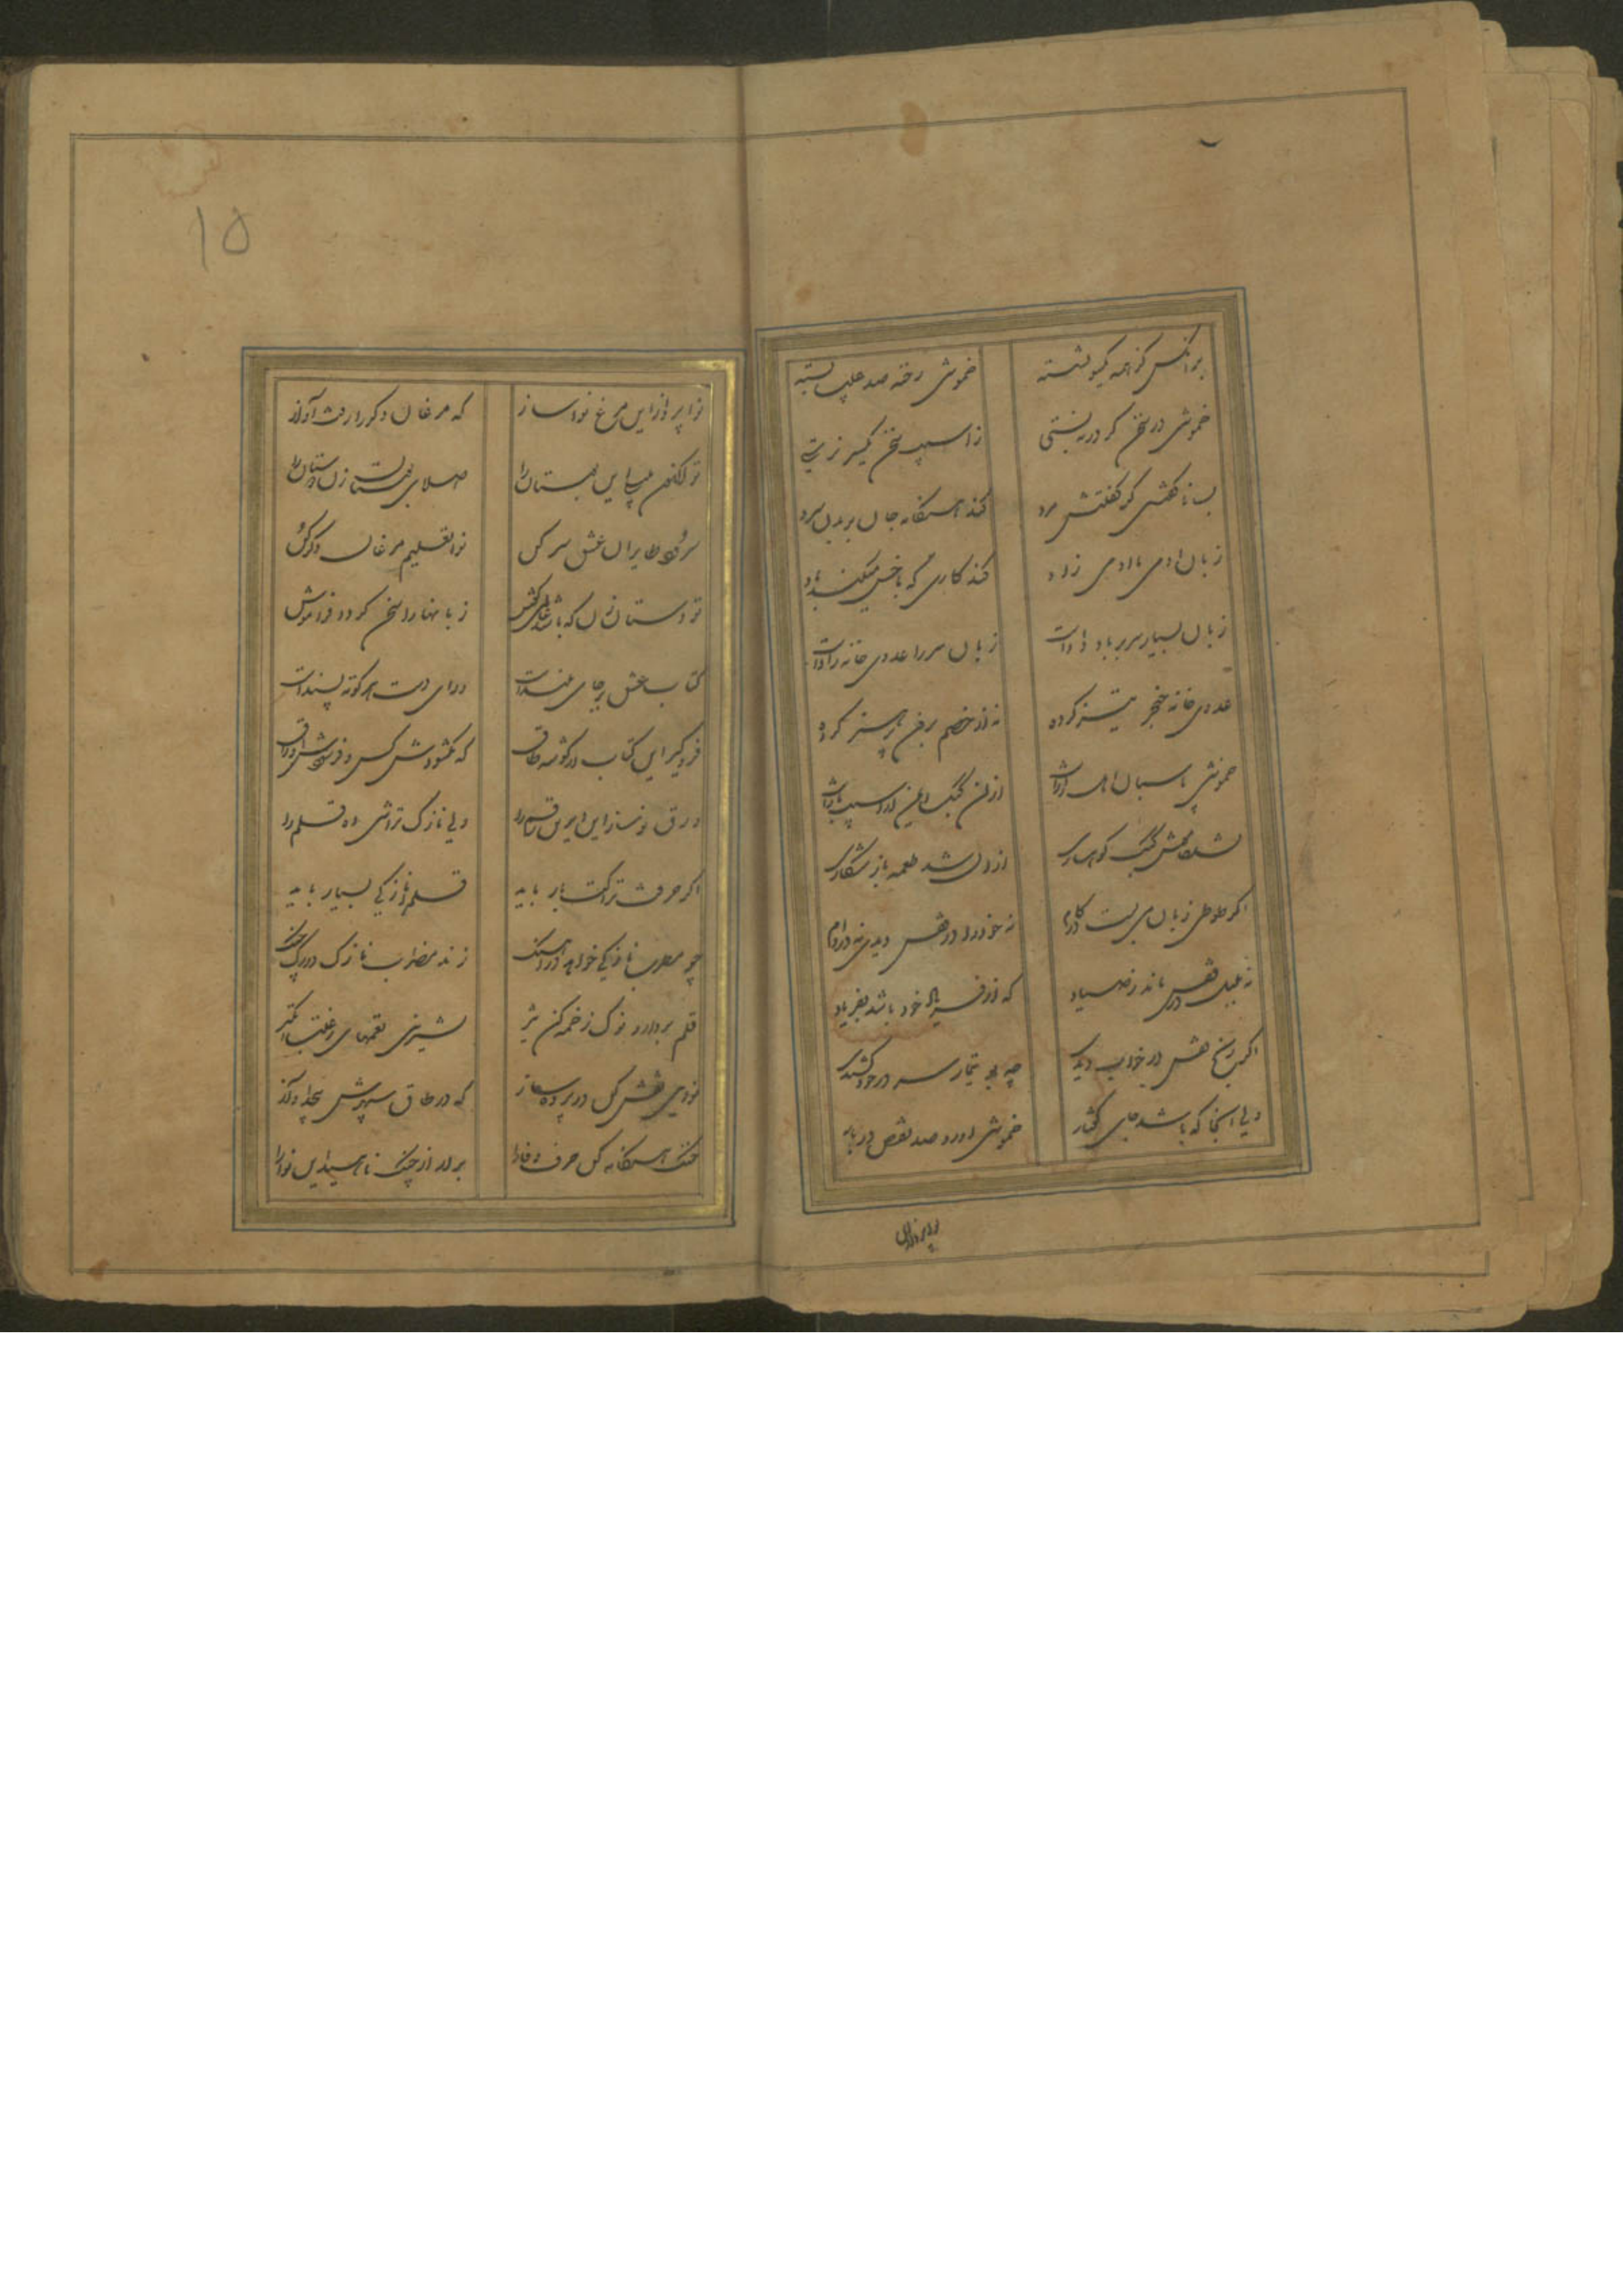 بر آنکس کز همه یکسو نشسته خموشی رخنه صد عیب بسته
خموشی در سخن گر در نبستی ز آسیب سخن
بسا ناگفتنی کز گفتنش مرد کند هنگامه جان بر بدن سرد
زبان آدمی با آدمی زاد کند کاری که با خس میکند باد
زبان بسیار سر بر باد دادست زبان سر را عدوی خانه زادست
عدوی خانه خنجر تیز کرده تو از خصم برون پرهیز کرده
خموشی پاسبان اهل رازست ازان کبک ایمن از آسیب بازست
نشد خامش کبک کوهساری ازان شد طعمه باز شکاری
اگر طوطی زبان می بست در کام نه خود را در قفس دیدی نه در دام
نه بلبل در قفس ماند ز صیاد که از فریاد خود باشد بفریاد
اگر رنج قفس در خواب دیدی چو بوتیمار سر در خود کشیدی
ولی آنجا که باشد جای گفتار خموشی آورد صد نقص در بار
۱۵
نوا پرداز ای مرغ نواساز که مرغان دگر را رفت آواز
تو اکنون این بستان را صلای بلبلستان زن دوستان را
سرود طایران عشق سر کن نوا تعلیم مرغان دگر کن
تو دستان زن که باشد عالمی گوش زبانها را سخن گردد فراموش
کتاب عشق بر جای بلندست ورای دست هر کوته پسندست
فروگیر این کتاب از گوشه طاق که نگشودش کس و فرسودش اوراق
ورق نوساز این دیرین رقم را ولی نازک تراشی ده قلم را
اگر حرفت نزاکت بار باید قلم را نازکی بسیار باید
چو مطرب نازکی خواهد در آهنگ زند مضراب نازک در رگ چنگ
قلم بردار و نوک زخمه کن تیز بشیرین نغمهای رغبت انگیز
نوای عشق کن در پرده ساز که در طاق سپهرش پیچد آواز
هنگامه کن حرف وفا را برآر از چنگ ناهید این نوا را